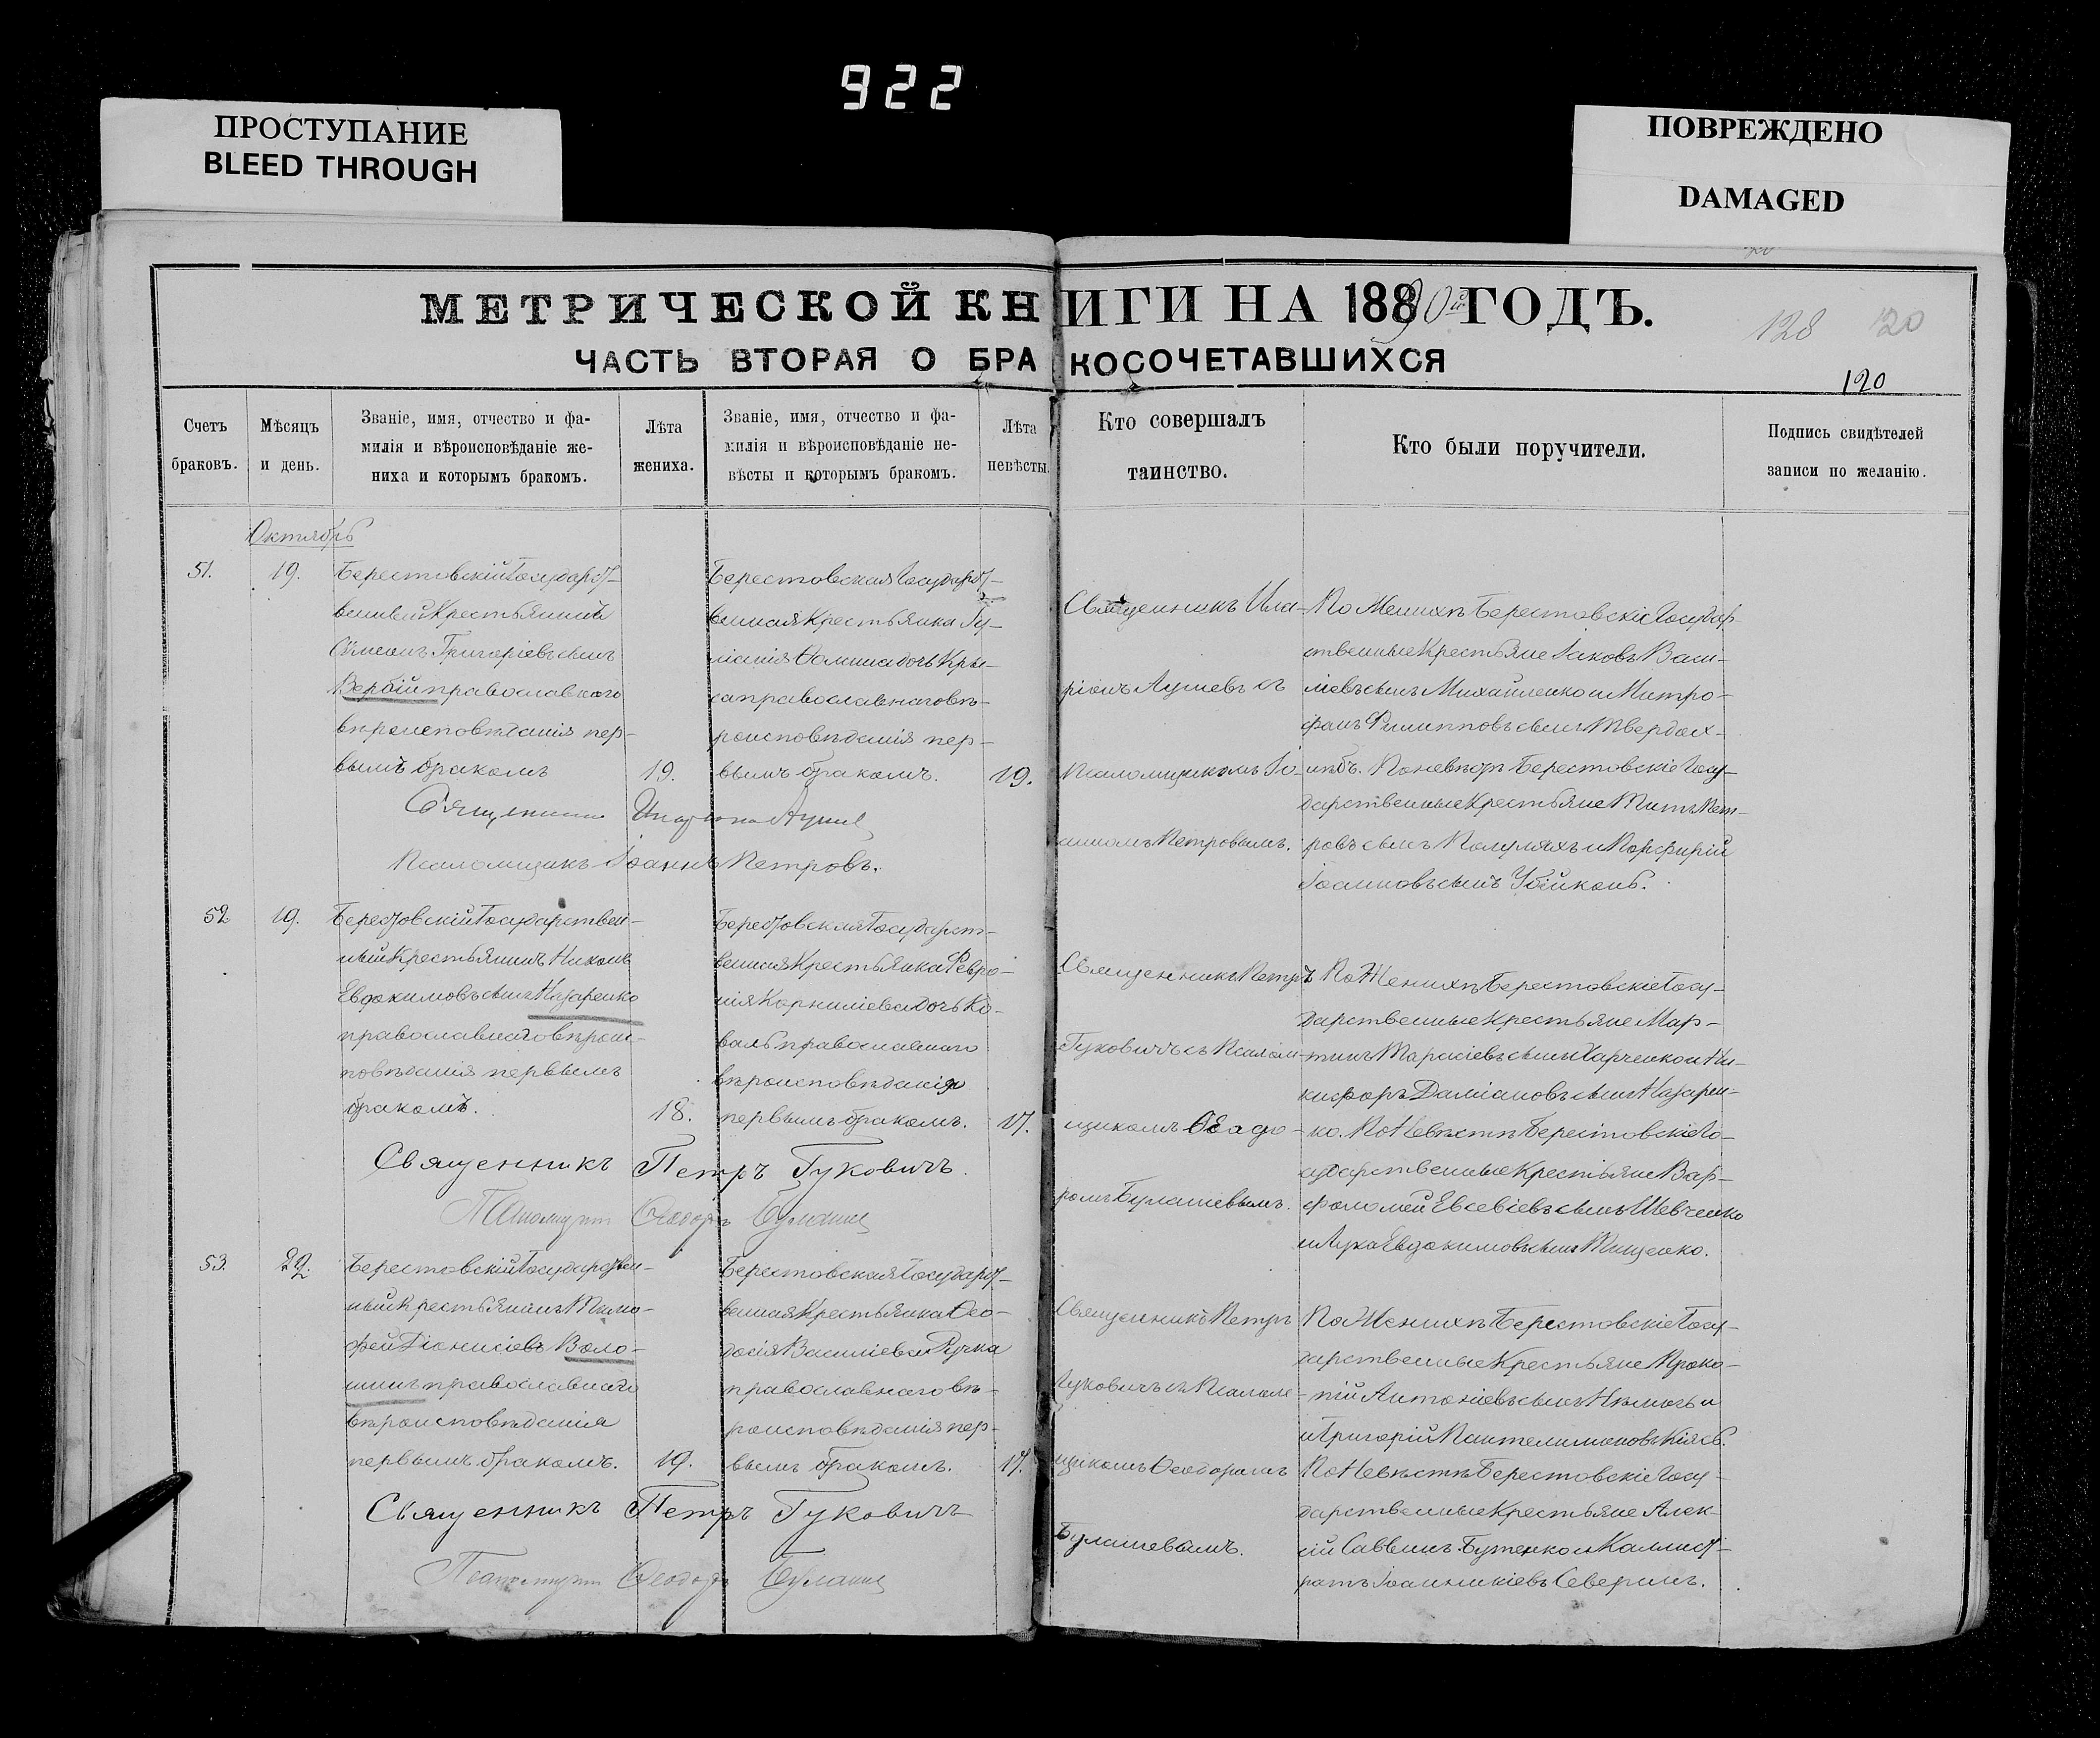 922
ПРОСТУПАНИЕ
BLEED THROUGH
ПОВРЕЖДЕНО
DAMAGED
МЕТРИЧЕСКОЙ КНИГИ НА 18890й ГОДЪ.
128 120
ЧАСТЬ ВТОРАЯ О БРАКОСОЧЕТАВШИХСЯ
120
Счетъ
браковъ.
Мѣсяцъ
и день.
Званіе, имя, отчество и фа-
милія и вѣроисповѣданіе же-
ниха и которымъ бракомъ.
Лѣта
жениха.
Званіе, имя, отчество и фа-
милія и вѣроисповѣданіе не-
вѣсты и которымъ бракомъ.
Лѣта
невѣсты.
Кто совершалъ
таинство.
Кто были поручители.
Подпись свидѣтелей
записи по желанію.
Октябрь
51.
19.
Берестовскій Государст-
венный Крестьянинъ
Сѵмеонъ Григоріевъ сынъ
Вербій православнаго
вѣроисповѣданія пер-
вымъ бракомъ
19.
Берестовская Государст-
венная Крестьянка Іу-
ліанія Ѳомина дочь Кры-
са православнаго вѣ-
роисповѣданія пер-
вымъ бракомъ.
19.
Священникъ Ила-
ріонъ Ауліевъ съ
псаломщикомъ Іо-
анномъ Петровымъ.
По Женихѣ Берестовскіе Государ-
ственные Крестьяне Іаковъ Васи-
ліевъ сынъ Михайленко и Митро-
фанъ Филипповъ сынъ Твердох-
лѣбъ. По невѣстѣ Берестовскіе Госу-
дарственные Крестьяне Титъ Пет-
ровъ сынъ и Порфирій
Іоанновъ сынъ Убійконь.
Священникъ Иларіонъ
Псаломщикъ Іоаннъ Петровъ.
52
19.
Берестовскій Государствен-
ный Крестьянинъ Никонъ
Евдокимовъ сынъ Назаренко
православнаго вѣроис-
повѣданія первымъ
бракомъ.
18.
Берестовская Государст-
венная Крестьянка Февро-
нія Корниліева дочь Ко-
валь православнаго
вѣроисповѣданія
первымъ бракомъ.
17.
Священникъ Петръ
Гуковичъ съ Псалом-
щикомъ Ѳеодо-
ромъ Булашевымъ.
По Женихѣ Берестовскіе Госу-
дарственные Крестьяне Мар-
тинъ Тарасіевъ сынъ Харченко и Ни-
кифоръ Даміановъ сынъ Назарен-
ко. По Невѣстѣ Берестовскіе Го-
сударственные Крестьяне Вар-
фоломей Евсевіевъ сынъ Шевченко
и Лука Евдокимовъ сынъ Тищенко.
Священникъ Петръ Гуковичъ.
Псаломщикъ Ѳеодоръ Булашевъ
53.
22.
Берестовскій Государствен-
ный Крестьянинъ Тимо-
фей Діонисіевъ Воло-
шинъ православнаго
вѣроисповѣданія
первымъ бракомъ.
19.
Берестовская Государст-
венная Крестьянка Ѳео-
досія Василіева Ручка
православнаго вѣ-
роисповѣданія пер-
вымъ бракомъ.
17.
Священникъ Петръ
Гуковичъ съ Псалом-
щикомъ Ѳеодоромъ
Булашевымъ.
По Женихѣ Берестовскіе Госу-
дарственные Крестьяне Проко-
пій Антоніевъ сынъ и
и Григорій Пантелимоновъ
По Невѣстѣ Берестовскіе Госу-
дарственные Крестьяне Алек-
сій Саввинъ Бутенко и Каллист-
ратъ Іоанникіевъ Северинъ.
Священникъ Петръ Гуковичъ
Псаломщикъ Ѳеодоръ Булашевъ